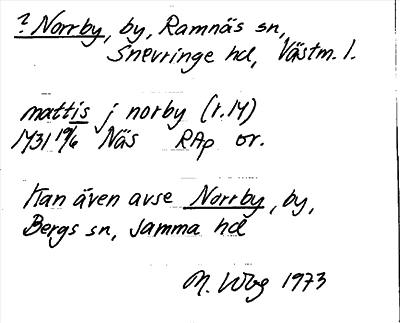 ? Norrby, by, Ramnäs sn,
Snevringe hd, Västm. l.
mattis j norby (r. 14)
1431 19/6 Näs RAp or.
Kan även avse Norrby, by,
Bergs sn, samma hd
M. Wbg 1973